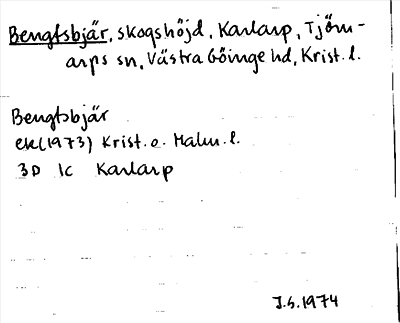 Bengtsbjär, skogshöjd, Karlarp, Tjörn-
arps sn, Västra Göinge hd, Krist. l.
Bengtsbjär
ek(1973) Krist. o. Malm. l.
3D 1c Karlarp
J.S. 1974